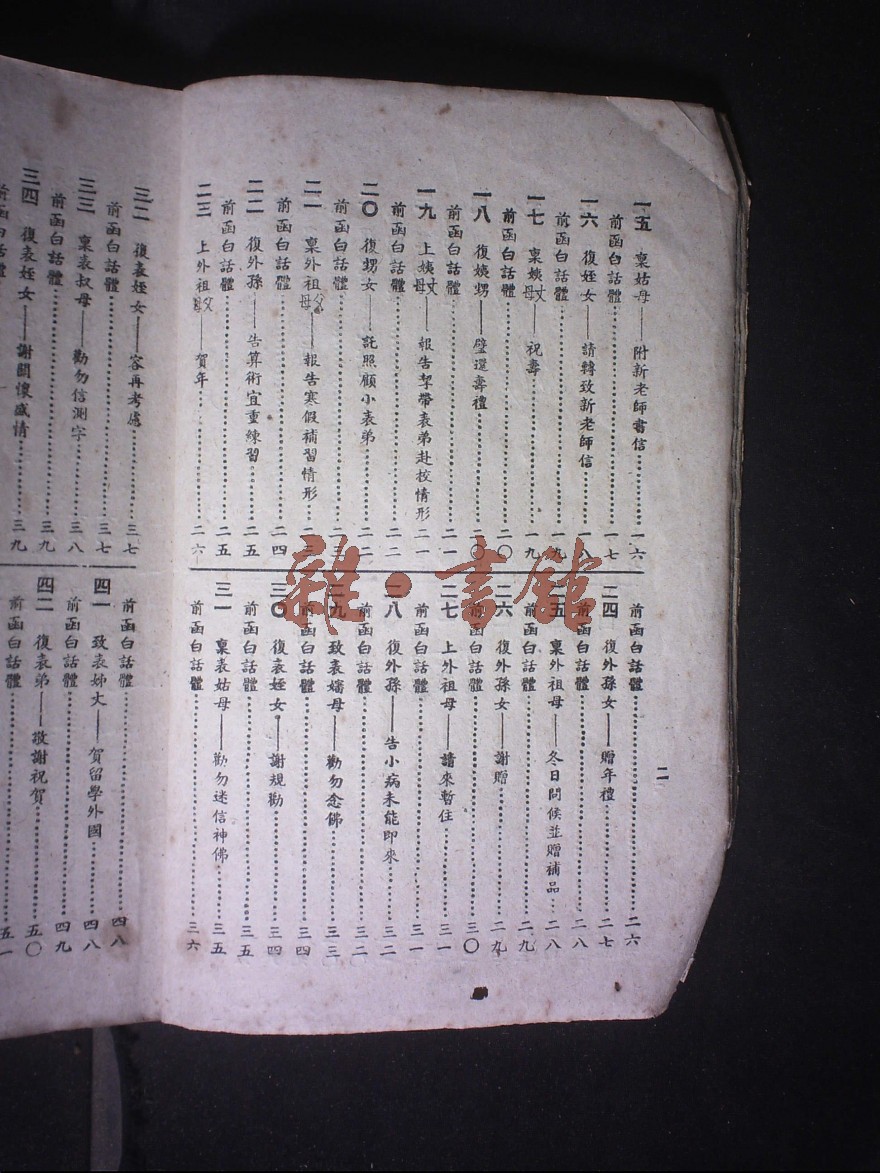 一五 稟姑母——附新老師書信 一六
前函白話體 一七
一六 復姪女——請轉致新老師信 一八
前函白話體 一九
一七 稟姨母丈——祝壽 一九
前函白話體 二〇
一八 復姨甥——璧還壽禮 二〇
前函白話體 二一
一九 上姨母丈——報告挈帶表弟赴校情形 二一
前函白話體 二二
二〇 復甥女——託照顧小表弟 二二
前函白話體 二三
二一 稟外祖母父——報告寒假補習情形 二三
前函白話體 二四
二二 復外孫——告算術宜重練習 二五
前函白話體 二五
二三 上外祖母父——賀年 二六
前函白話體 二六
二四 復外孫女——贈年禮 二七
前函白話體 二八
二五 稟外祖母——冬日問候並贈補品 二八
前函白話體 二九
二六 復外孫女——謝贈 二九
前函白話體 三〇
二七 上外祖母——請來暫住 三一
前函白話體 三一
二八 復外孫——告小病未能即來 三二
前函白話體 三二
二九 致表嬸母——勸勿念佛 三三
前函白話體 三四
三〇 復表姪女——謝規勸 三四
前函白話體 三五
三一 稟表姑母——勸勿迷信神佛 三五
前函白話體 三六
二
三二 復表姪女——容再考慮 三七
前函白話體 三七
三三 稟表叔母——勸勿信測字 三八
前函白話體 三九
三四 復表姪女——謝關懷盛情 三九
前函白話體
前函白話體 四八
四一 致表姊丈——賀留學外國 四八
前函白話體 四九
四二 復表弟——敬謝祝賀 五〇
前函白話體 五一
雜·書館